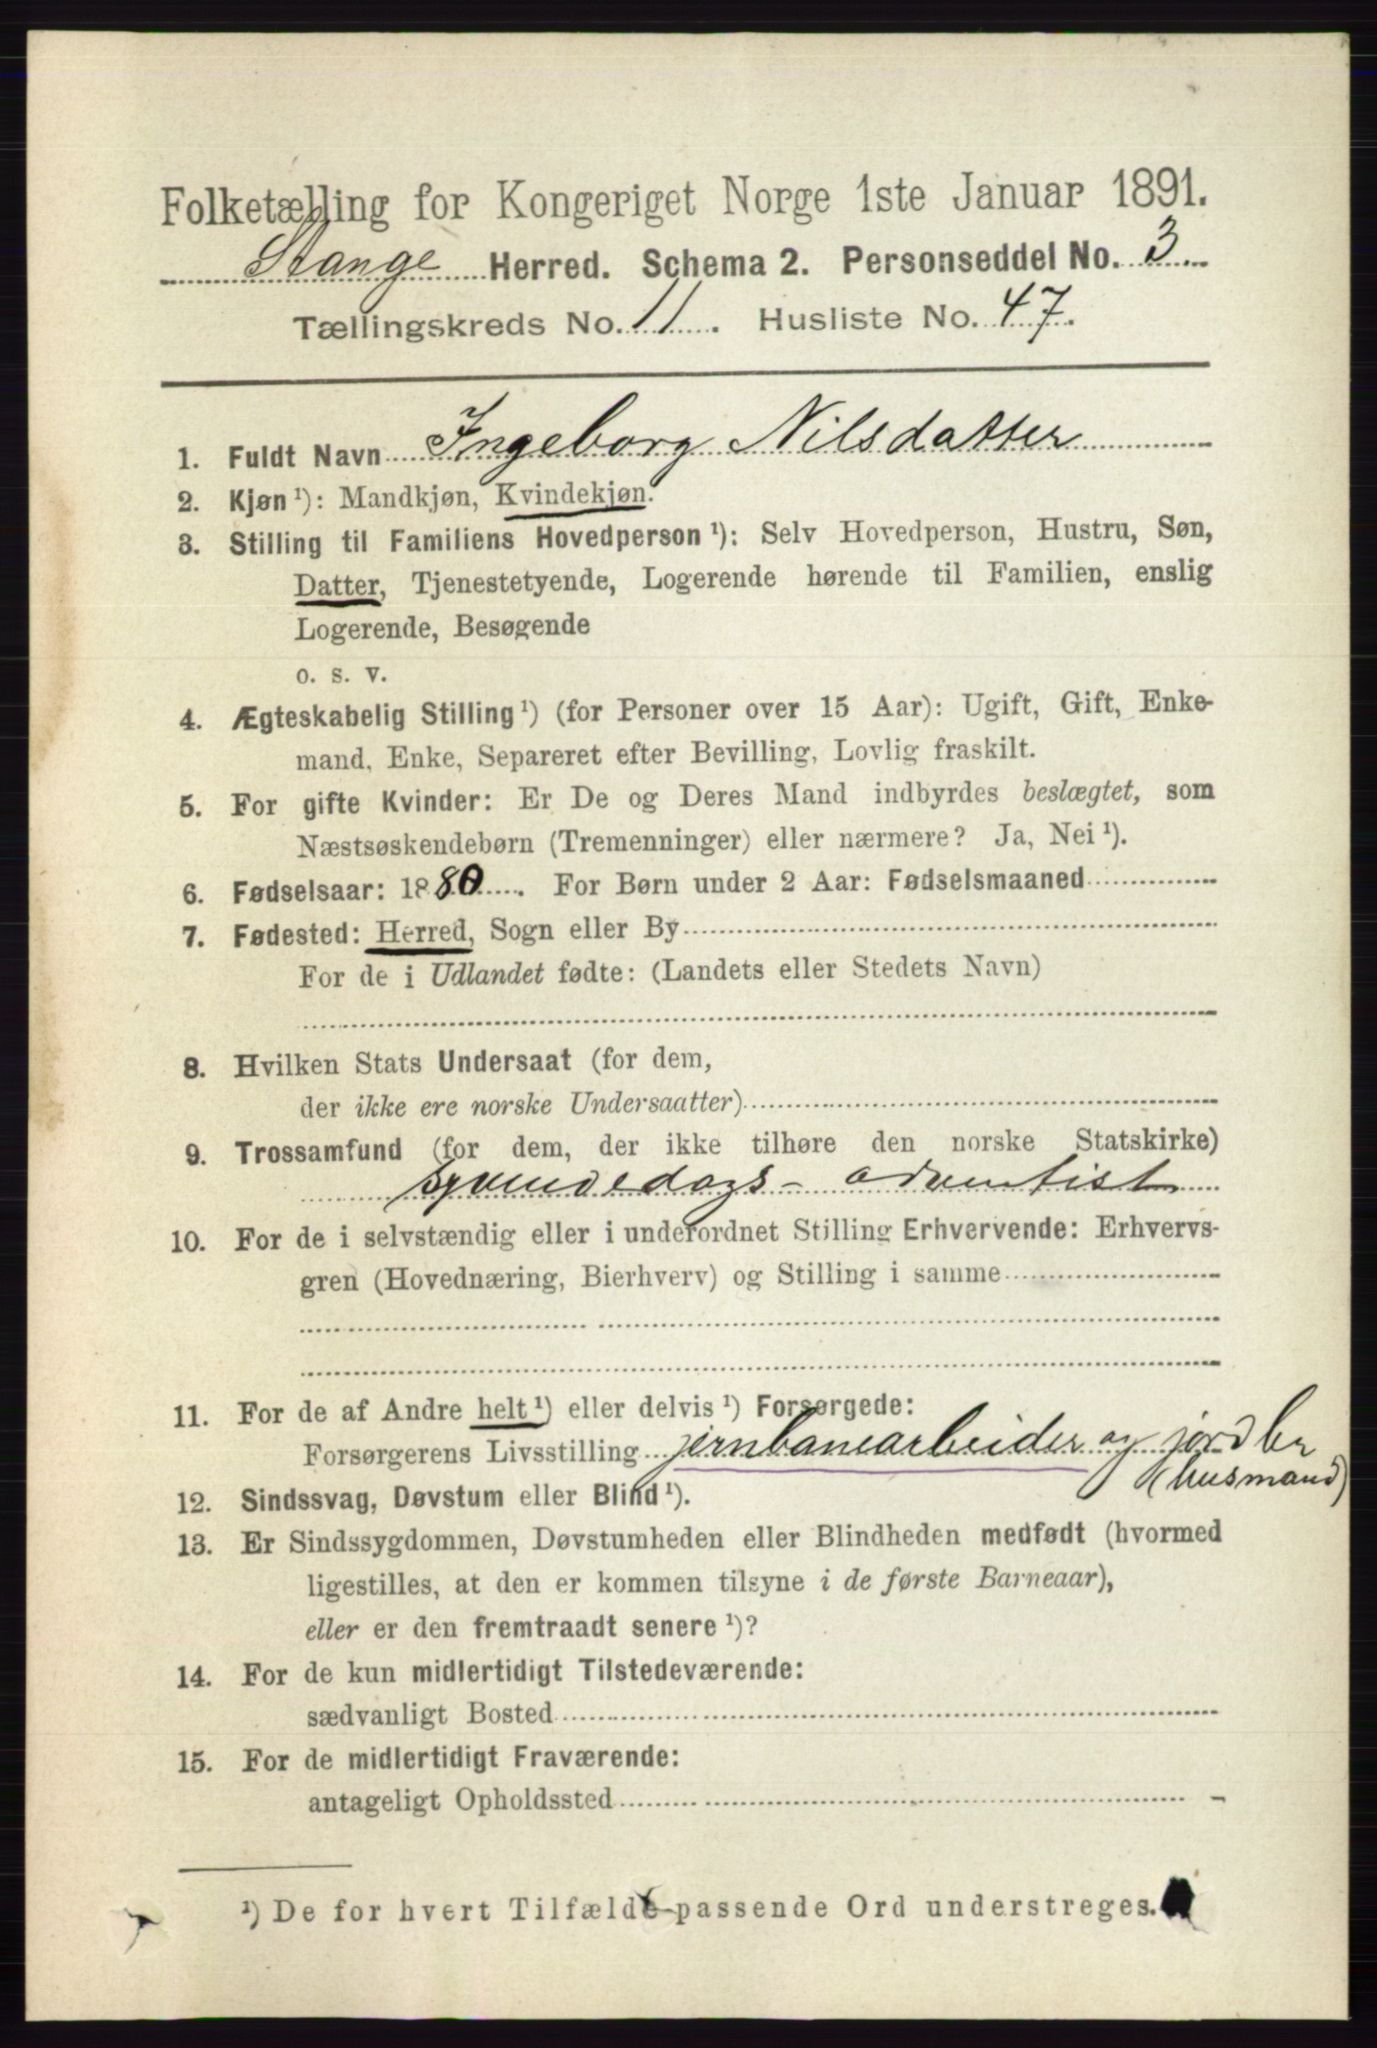 Folketælling for Kongeriget Norge 1ste Januar 1891.
Stange Herred. Schema 2. Personseddel No. 3.
Tællingskreds No. 11. Husliste No. 47.
1. Fuldt Navn Ingeborg Nilsdatter
2. Kjøn ¹): Mandkjøn, Kvindekjøn.
3. Stilling til Familiens Hovedperson ¹): Selv Hovedperson, Hustru, Søn,
Datter, Tjenestetyende, Logerende hørende til Familien, enslig
Logerende, Besøgende
o. s. v.
4. Ægteskabelig Stilling ¹) (for Personer over 15 Aar): Ugift, Gift, Enke-
mand, Enke, Separeret efter Bevilling, Lovlig fraskilt.
5. For gifte Kvinder: Er De og Deres Mand indbyrdes beslægtet, som
Næstsøskendebørn (Tremenninger) eller nærmere? Ja, Nei ¹).
6. Fødselsaar: 1880. For Børn under 2 Aar: Fødselsmaaned
7. Fødested: Herred, Sogn eller By
For de i Udlandet fødte: (Landets eller Stedets Navn)
8. Hvilken Stats Undersaat (for dem,
der ikke ere norske Undersaatter)
9. Trossamfund (for dem, der ikke tilhøre den norske Statskirke)
syvendedags-adventist
10. For de i selvstændig eller i underordnet Stilling Erhvervende: Erhvervs-
gren (Hovednæring, Bierhverv) og Stilling i samme
11. For de af Andre helt ¹) eller delvis ¹) Forsørgede:
Forsørgerens Livsstilling jernbanearbeider og jordbr
(husmand)
12. Sindssvag, Døvstum eller Blind ¹).
13. Er Sindssygdommen, Døvstumheden eller Blindheden medfødt (hvormed
ligestilles, at den er kommen tilsyne i de første Barneaar),
eller er den fremtraadt senere ¹)?
14. For de kun midlertidigt Tilstedeværende:
sædvanligt Bosted
15. For de midlertidigt Fraværende:
antageligt Opholdssted
¹) De for hvert Tilfælde passende Ord understreges.